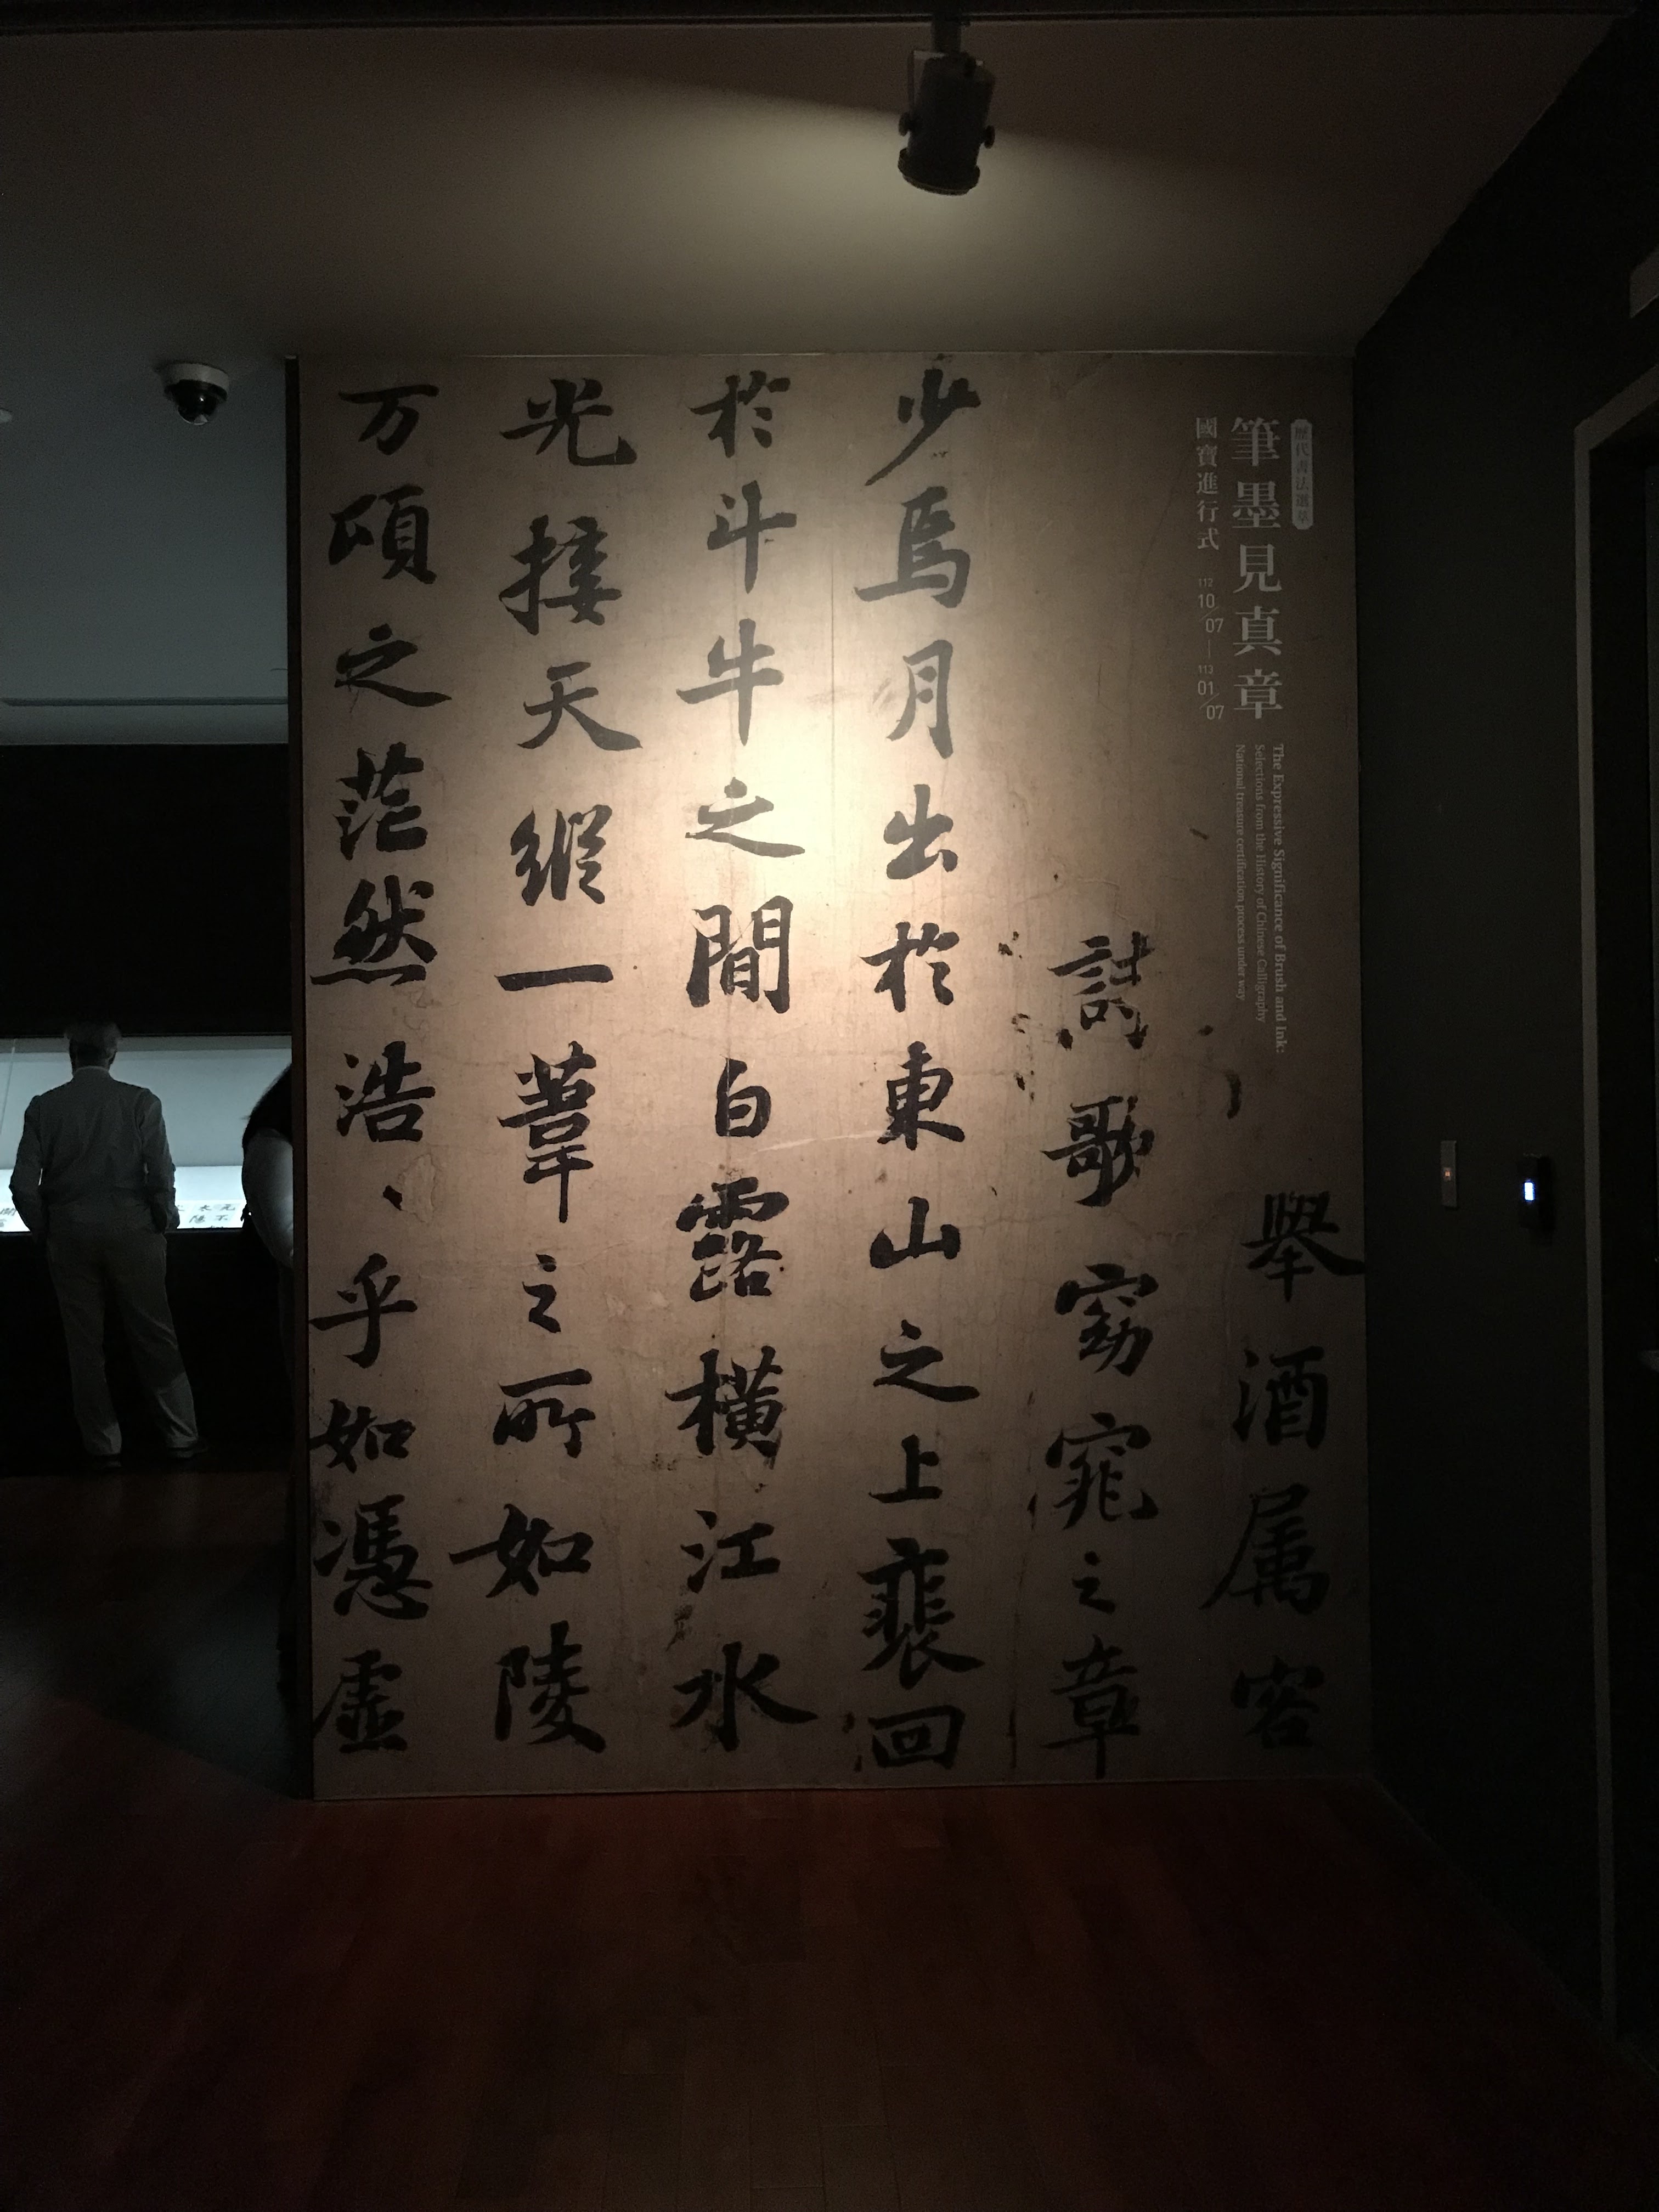 歷代書法選萃
筆墨見真章
國寶進行式 112 10/07—113 01/07
The Expressive Significance of Brush and Ink:
Selections from the History of Chinese Calligraphy
National treasure certification process under way
舉酒属客
誦歌窈窕之章
少焉月出於東山之上裴回
於斗牛之間白露橫江水
光接天縱一葦之所如陵
万頃之茫然浩、乎如馮虛